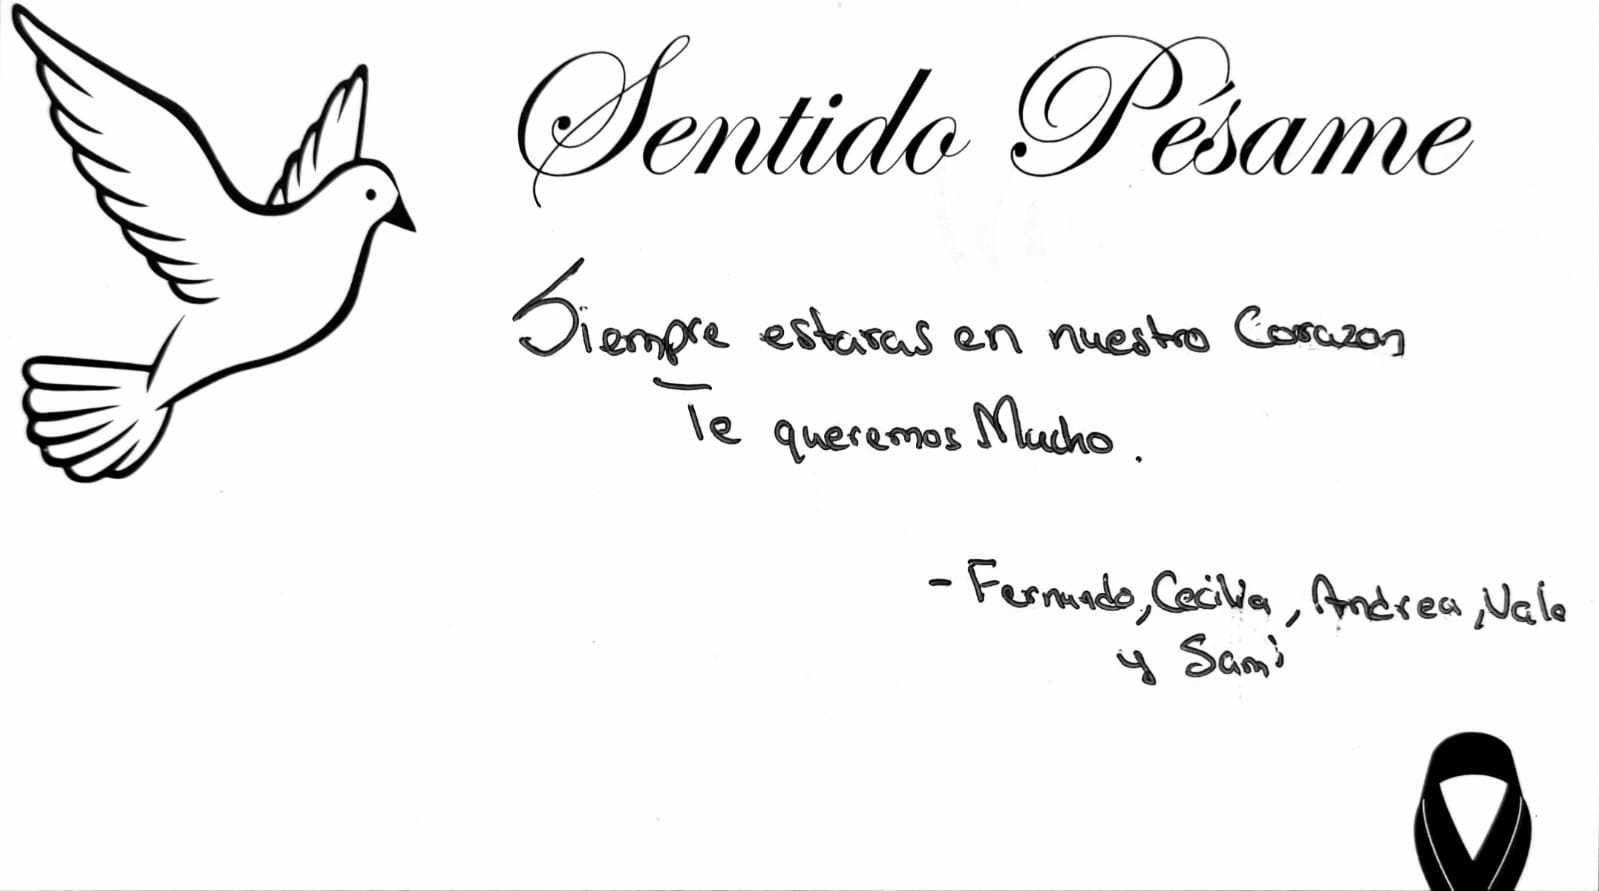 Sentido Pésame
Siempre estaras en nuestro Corazon
Te queremos Mucho.
- Fernando, Cecilia, Andrea, Vale
y Sami